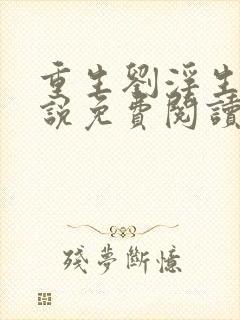 重生劉淫生
說免費閱讀
殘夢斷憶